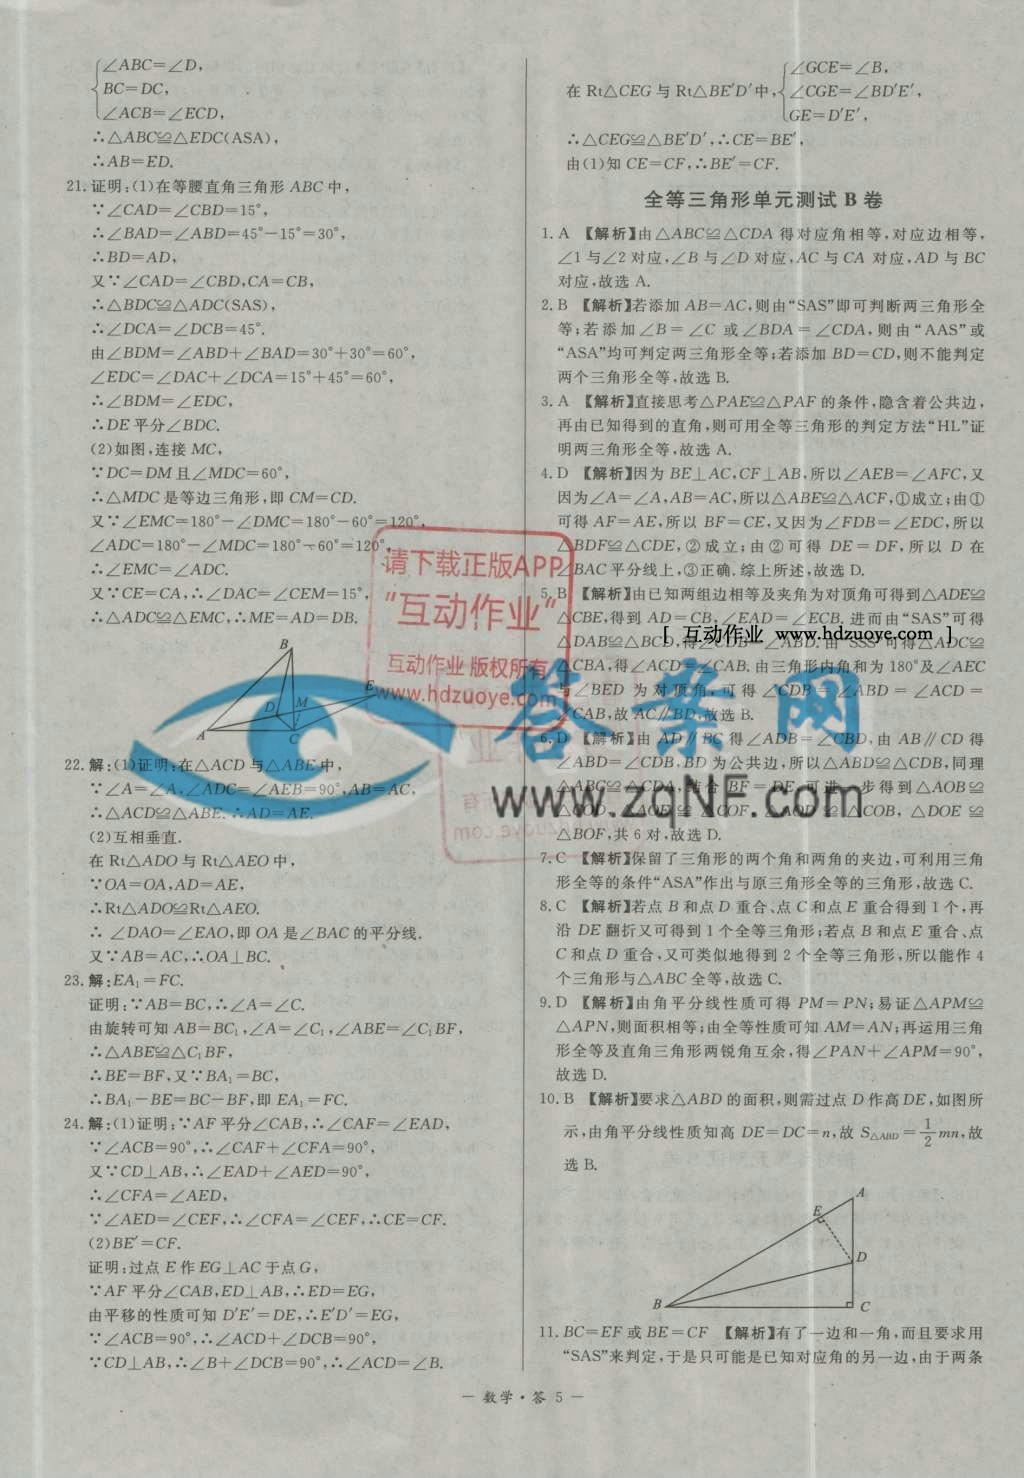 ∠ABC=∠D,
BC=DC,
∠ACB=∠ECD,
∴△ABC≌△EDC(ASA),
∴AB=ED.
21.证明:(1)在等腰直角三角形 ABC中,
∵∠CAD=∠CBD=15°,
∴∠BAD=∠ABD=45°-15°=30°,
∴BD=AD,
又∵∠CAD=∠CBD,CA=CB,
∴△BDC≌△ADC(SAS),
∴∠DCA=∠DCB=45°.
由∠BDM=∠ABD+∠BAD=30°+30°=60°,
∠EDC=∠DAC+∠DCA=15°+45°=60°,
∴∠BDM=∠EDC,
∴DE平分∠BDC.
(2)如图,连接 MC,
∵DC=DM且∠MDC=60°,
∴△MDC是等边三角形,即 CM=CD.
又∵∠EMC=180°-∠DMC=180°-60°=120°,
∠ADC=180°-∠MDC=180°-60°=120°,
∴∠EMC=∠ADC.
又∵CE=CA,∴∠DAC=∠CEM=15°,
∴△ADC≌△EMC,∴ME=AD=DB.
B
E
D
M
A
C
22.解:(1)证明:在△ACD与△ABE中,
∵∠A=∠A,∠ADC=∠AEB=90°,AB=AC,
∴△ACD≌△ABE.∴AD=AE.
(2)互相垂直.
在 Rt△ADO与 Rt△AEO中,
∵OA=OA,AD=AE,
∴Rt△ADO≌Rt△AEO.
∴ ∠DAO=∠EAO,即 OA是∠BAC的平分线.
又∵AB=AC,∴OA⊥BC.
23.解:EA₁=FC.
证明:∵AB=BC,∴∠A=∠C.
由旋转可知 AB=BC₁,∠A=∠C₁,∠ABE=∠C₁BF,
∴△ABE≌△C₁BF,
∴BE=BF,又∵BA₁=BC,
∴BA₁-BE=BC-BF,即 EA₁=FC.
24.解:(1)证明:∵AF平分∠CAB,∴∠CAF=∠EAD,
∵∠ACB=90°,∴∠CAF+∠CFA=90°,
又∵CD⊥AB,∴∠EAD+∠AED=90°,
∴∠CFA=∠AED,
∵∠AED=∠CEF,∴∠CFA=∠CEF,∴CE=CF.
(2)BE′=CF.
证明:过点 E作 EG⊥AC于点G,
∵AF平分∠CAB,ED⊥AB,∴ED=EG,
由平移的性质可知 D′E′=DE,∴E′D′=EG,
∵∠ACB=90°,∴∠ACD+∠DCB=90°,
∵CD⊥AB,∴∠B+∠DCB=90°,∴∠ACD=∠B.
在 Rt△CEG与 Rt△BE′D′中,
∠GCE=∠B,
∠CGE=∠BD′E′,
GE=D′E′,
∴△CEG≌△BE′D′,∴CE=BE′,
由(1)知 CE=CF,∴BE′=CF.
全等三角形单元测试 B 卷
1.A 【解析】由△ABC≌△CDA 得对应角相等,对应边相等,
∠1与∠2对应,∠B与∠D对应,AC与CA 对应,AD与BC
对应,故选 A.
2.B 【解析】若添加 AB=AC,则由“SAS”即可判断两三角形全
等;若添加∠B=∠C 或∠BDA=∠CDA,则由“AAS”或
“ASA”均可判定两三角形全等;若添加 BD=CD,则不能判定
两个三角形全等,故选 B.
3.A 【解析】直接思考△PAE≌△PAF的条件,隐含着公共边,
再由已知得到的直角,则可用全等三角形的判定方法“HL”证
明两三角形全等,故选 A.
4.D 【解析】因为 BE⊥AC,CF⊥AB,所以∠AEB=∠AFC,又
因为∠A=∠A,AB=AC,所以△ABE≌△ACF,①成立;由①
可得 AF=AE,所以 BF=CE,又因为∠FDB=∠EDC,所以
△BDF≌△CDE,②成立;由②可得 DE=DF,所以 D在
∠BAC平分线上,③正确.综上所述,故选 D.
5.B 【解析】由已知两组边相等及夹角为对顶角可得到△ADE≌
△CBE,得到 AD=CB,∠EAD=∠ECB.进而由“SAS”可得
△DAB≌△BCD,得∠CDB=∠ABD.由“SSS”可得△ADC≌
△CBA,得∠ACD=∠CAB.由三角形内角和为 180°及∠AEC
与∠BED 为对顶角,可得∠CDB=∠ABD=∠ACD=
∠CAB,故 AC∥BD.故选 B.
6.D 【解析】由 AD∥BC得∠ADB=∠CBD,由 AB∥CD得
∠ABD=∠CDB,BD为公共边,所以△ABD≌△CDB,同理
△ABC≌△CDA,结合 BF=DE,可进一步得到△AOB≌
△COD,△AOE≌△COF,△AOD≌△COB,△DOE≌
△BOF,共6对,故选 D.
7.C 【解析】保留了三角形的两个角和两角的夹边,可利用三角
形全等的条件“ASA”作出与原三角形全等的三角形,故选 C.
8.C 【解析】若点 B和点D重合、点C和点E重合得到1个,再
沿 DE翻折又可得到1个全等三角形;若点 B和点E重合、点
C和点D重合,又可类似地得到2个全等三角形,所以能作4
个三角形与△ABC全等,故选 C.
9.D 【解析】由角平分线性质可得 PM=PN;易证△APM≌
△APN,则面积相等;由全等性质可知 AM=AN;再运用三角
形全等及直角三角形两锐角互余,得∠PAN+∠APM=90°,
故选 D.
10.B 【解析】要求△ABD的面积,则需过点 D作高DE,如图所
示,由角平分线性质知高 DE=DC=n,故 S△ABD=1/2mn,故
选 B.
A
E
D
B
C
11.BC=EF或BE=CF 【解析】有了一边和一角,而且要求用
“SAS”来判定,于是只可能是已知对应角的另一边,由于两条
— 数学·答 5 —
请下载正版APP
“互动作业”
互动作业 版权所有
www.hdzuoye.com
[ 互动作业 www.hdzuoye.com ]
答案网
www.zqNF.com